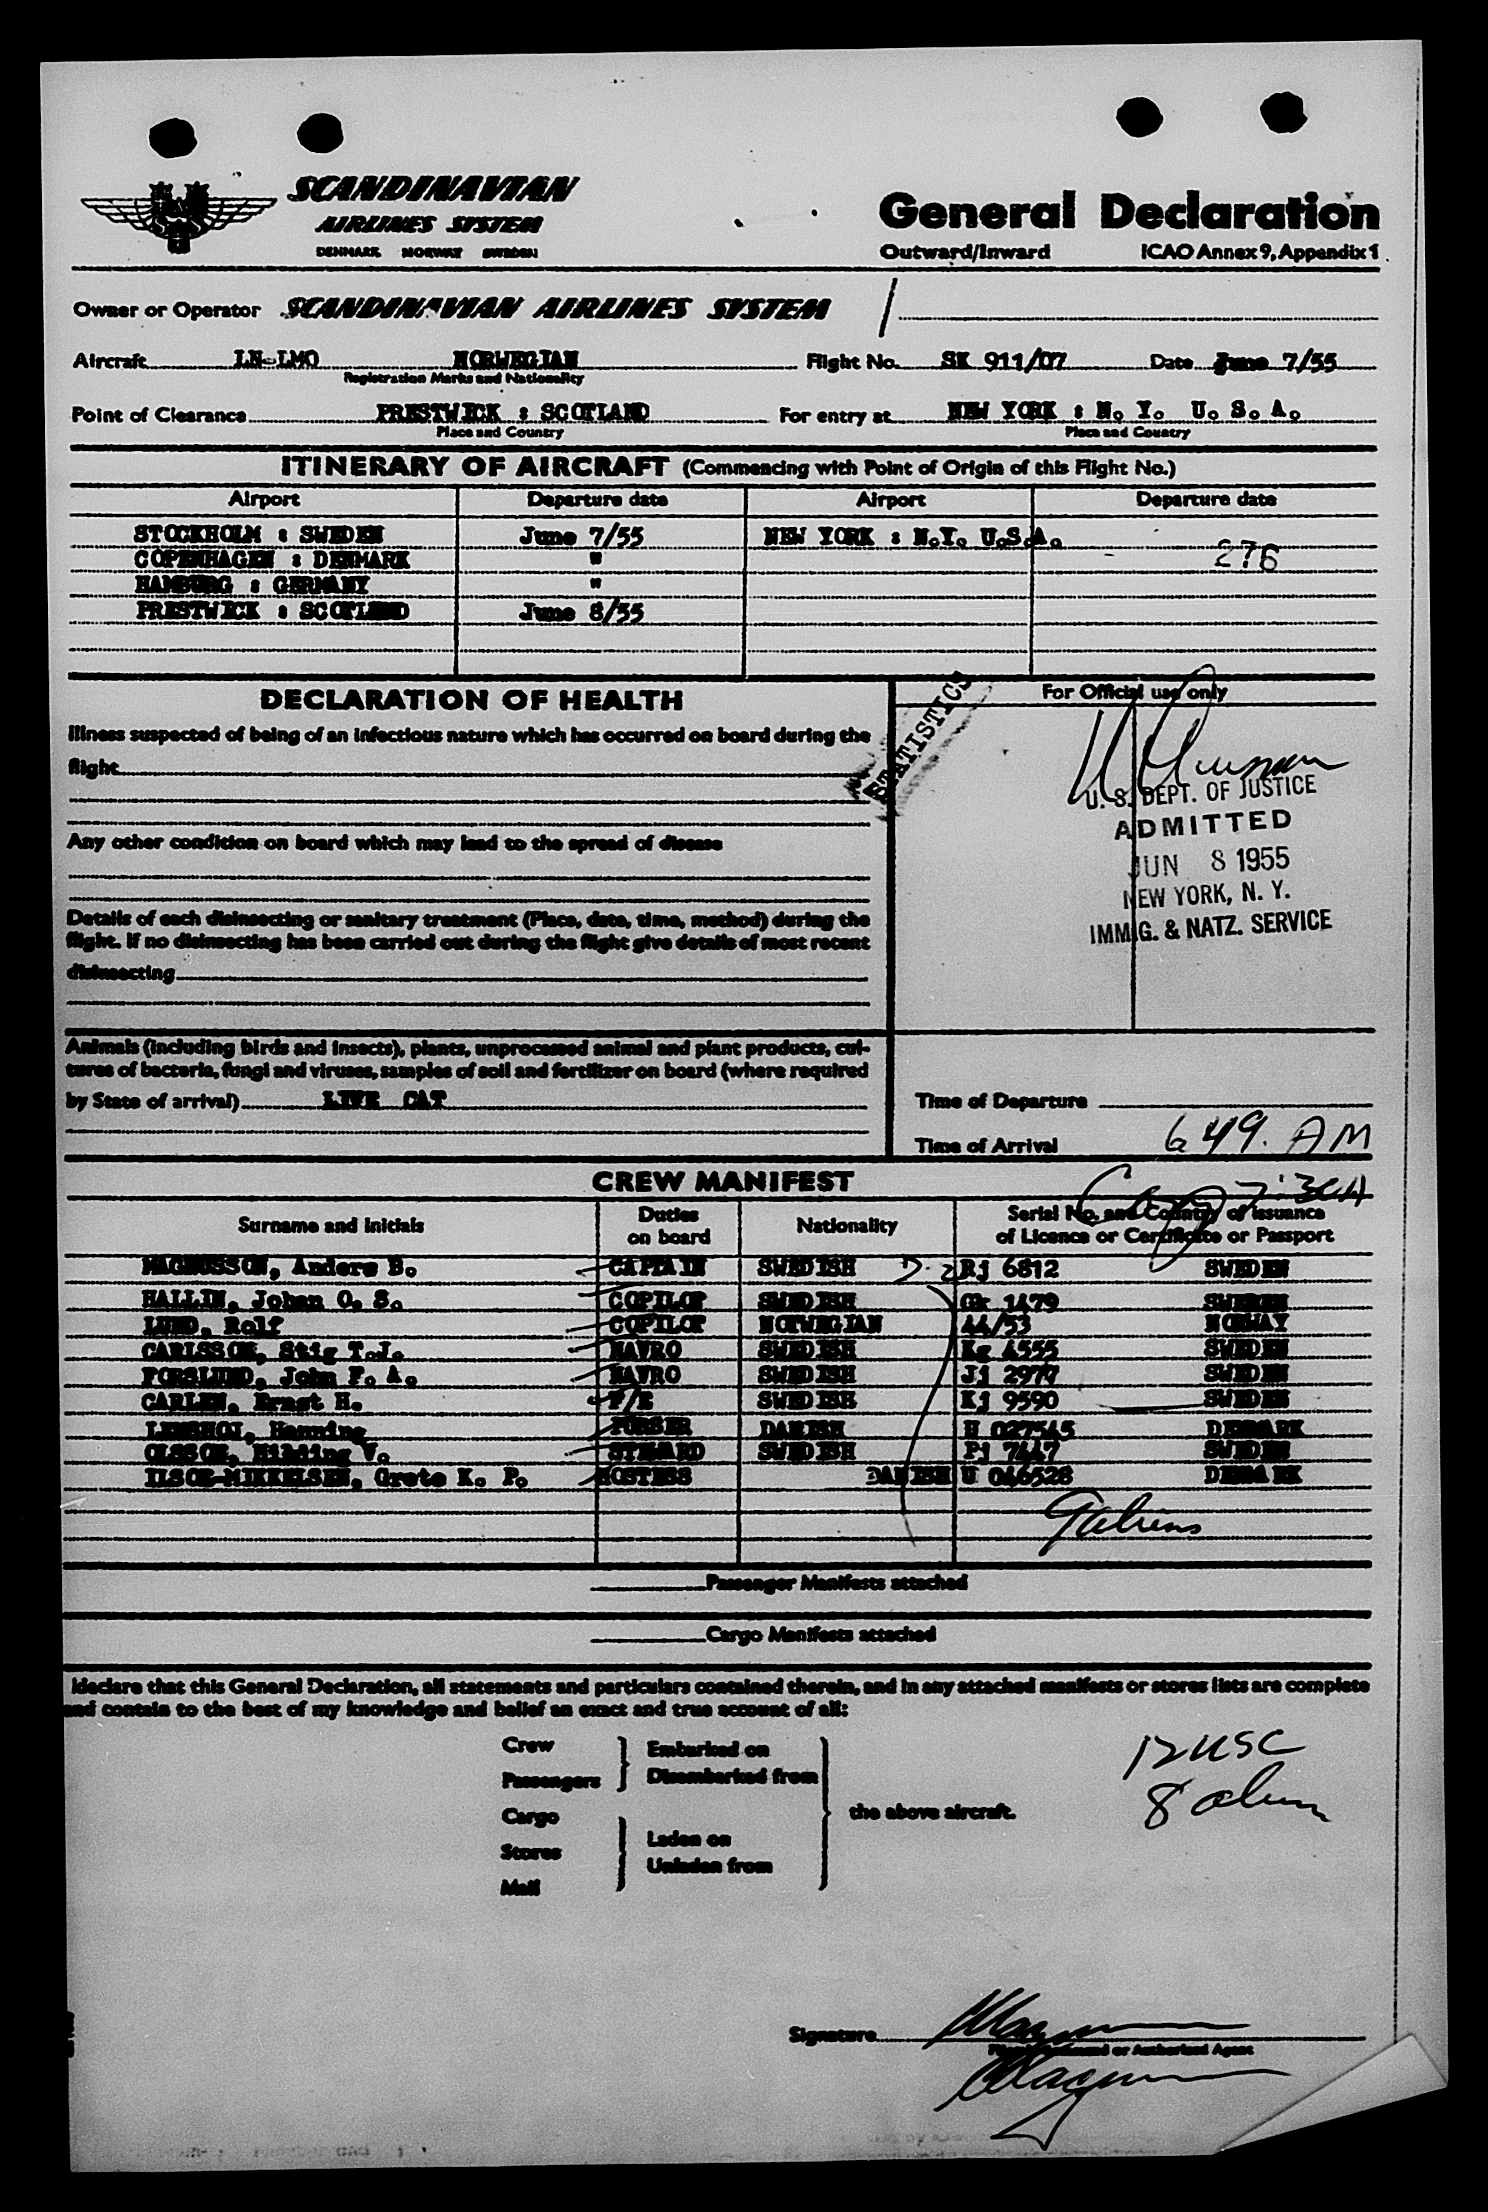 SCANDINAVIAN
AIRLINES SYSTEM
DENMARK NORWAY SWEDEN
General Declaration
Outward/Inward ICAO Annex 9, Appendix 1
Owner or Operator SCANDINAVIAN AIRLINES SYSTEM /
Aircraft LN-LMO NORWEGIAN Flight No. SK 911/07 Date June 7/55
Registration Marks and Nationality
Point of Clearance PRESTWICK : SCOTLAND For entry at NEW YORK : N. Y. U. S. A.
Place and Country Place and Country
ITINERARY OF AIRCRAFT (Commencing with Point of Origin of this Flight No.)
Airport Departure date Airport Departure date
STOCKHOLM : SWEDEN June 7/55 NEW YORK : N.Y. U.S.A.
COPENHAGEN : DENMARK " 276
HAMBURG : GERMANY "
PRESTWICK : SCOTLAND June 8/55
DECLARATION OF HEALTH
Illness suspected of being of an infectious nature which has occurred on board during the
flight
Any other condition on board which may lead to the spread of disease
Details of each disinsecting or sanitary treatment (Place, date, time, method) during the
flight. If no disinsecting has been carried out during the flight give details of most recent
disinsecting
STATISTICS
For Official use only
U. S. DEPT. OF JUSTICE
ADMITTED
JUN 8 1955
NEW YORK, N. Y.
IMMIG. & NATZ. SERVICE
Animals (including birds and insects), plants, unprocessed animal and plant products, cul-
tures of bacteria, fungi and viruses, samples of soil and fertilizer on board (where required
by State of arrival) LIVE CAT
Time of Departure
Time of Arrival 6 49. AM
CREW MANIFEST
Surname and initials Duties on board Nationality Serial No. and Country of issuance of Licence or Certificate or Passport
MAGNUSSON, Anders B. CAPTAIN SWEDISH D-2 Rj 6812 SWEDEN
HALLIN, Johan O. S. COPILOT SWEDISH Gk 1479 SWEDEN
LUND, Rolf COPILOT NORWEGIAN 44/53 NORWAY
CARLSSON, Stig T.J. NAVRO SWEDISH Kg 4555 SWEDEN
FORSLUND, John F. A. NAVRO SWEDISH Jj 2977 SWEDEN
CARLEN, Ernst H. F/E SWEDISH Kj 9590 SWEDEN
Henning PURSER DANISH U 027545 DENMARK
OLSSON, Hilding V. STEWARD SWEDISH Pj 7447 SWEDEN
ILSOE-MIKKELSEN, Grete K. P. HOSTESS DANISH U 046528 DENMARK
9 aliens
Passenger Manifests attached
Cargo Manifests attached
I declare that this General Declaration, all statements and particulars contained therein, and in any attached manifests or stores lists are complete
and contain to the best of my knowledge and belief an exact and true account of all:
Crew
Passengers
Embarked on
Disembarked from
Cargo
Stores
Mail
Laden on
Unladen from
the above aircraft.
12 USC
8 alien
Signature
or Authorized Agent